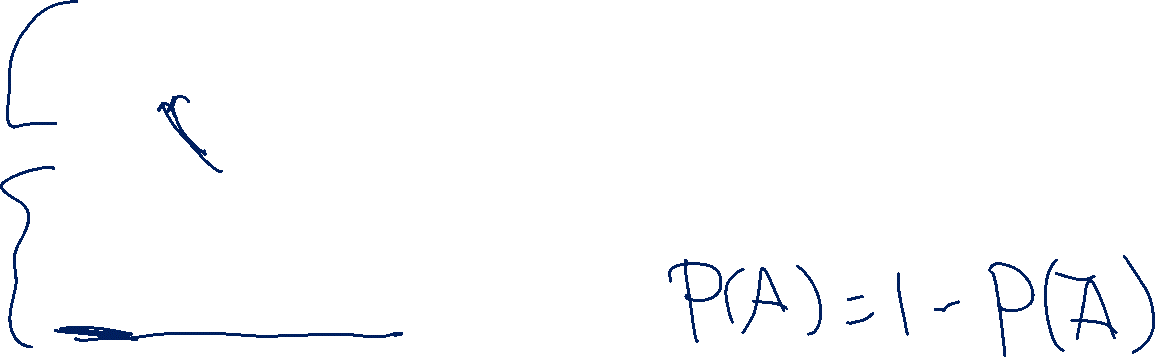 P(A) = 1 - P(Ā)